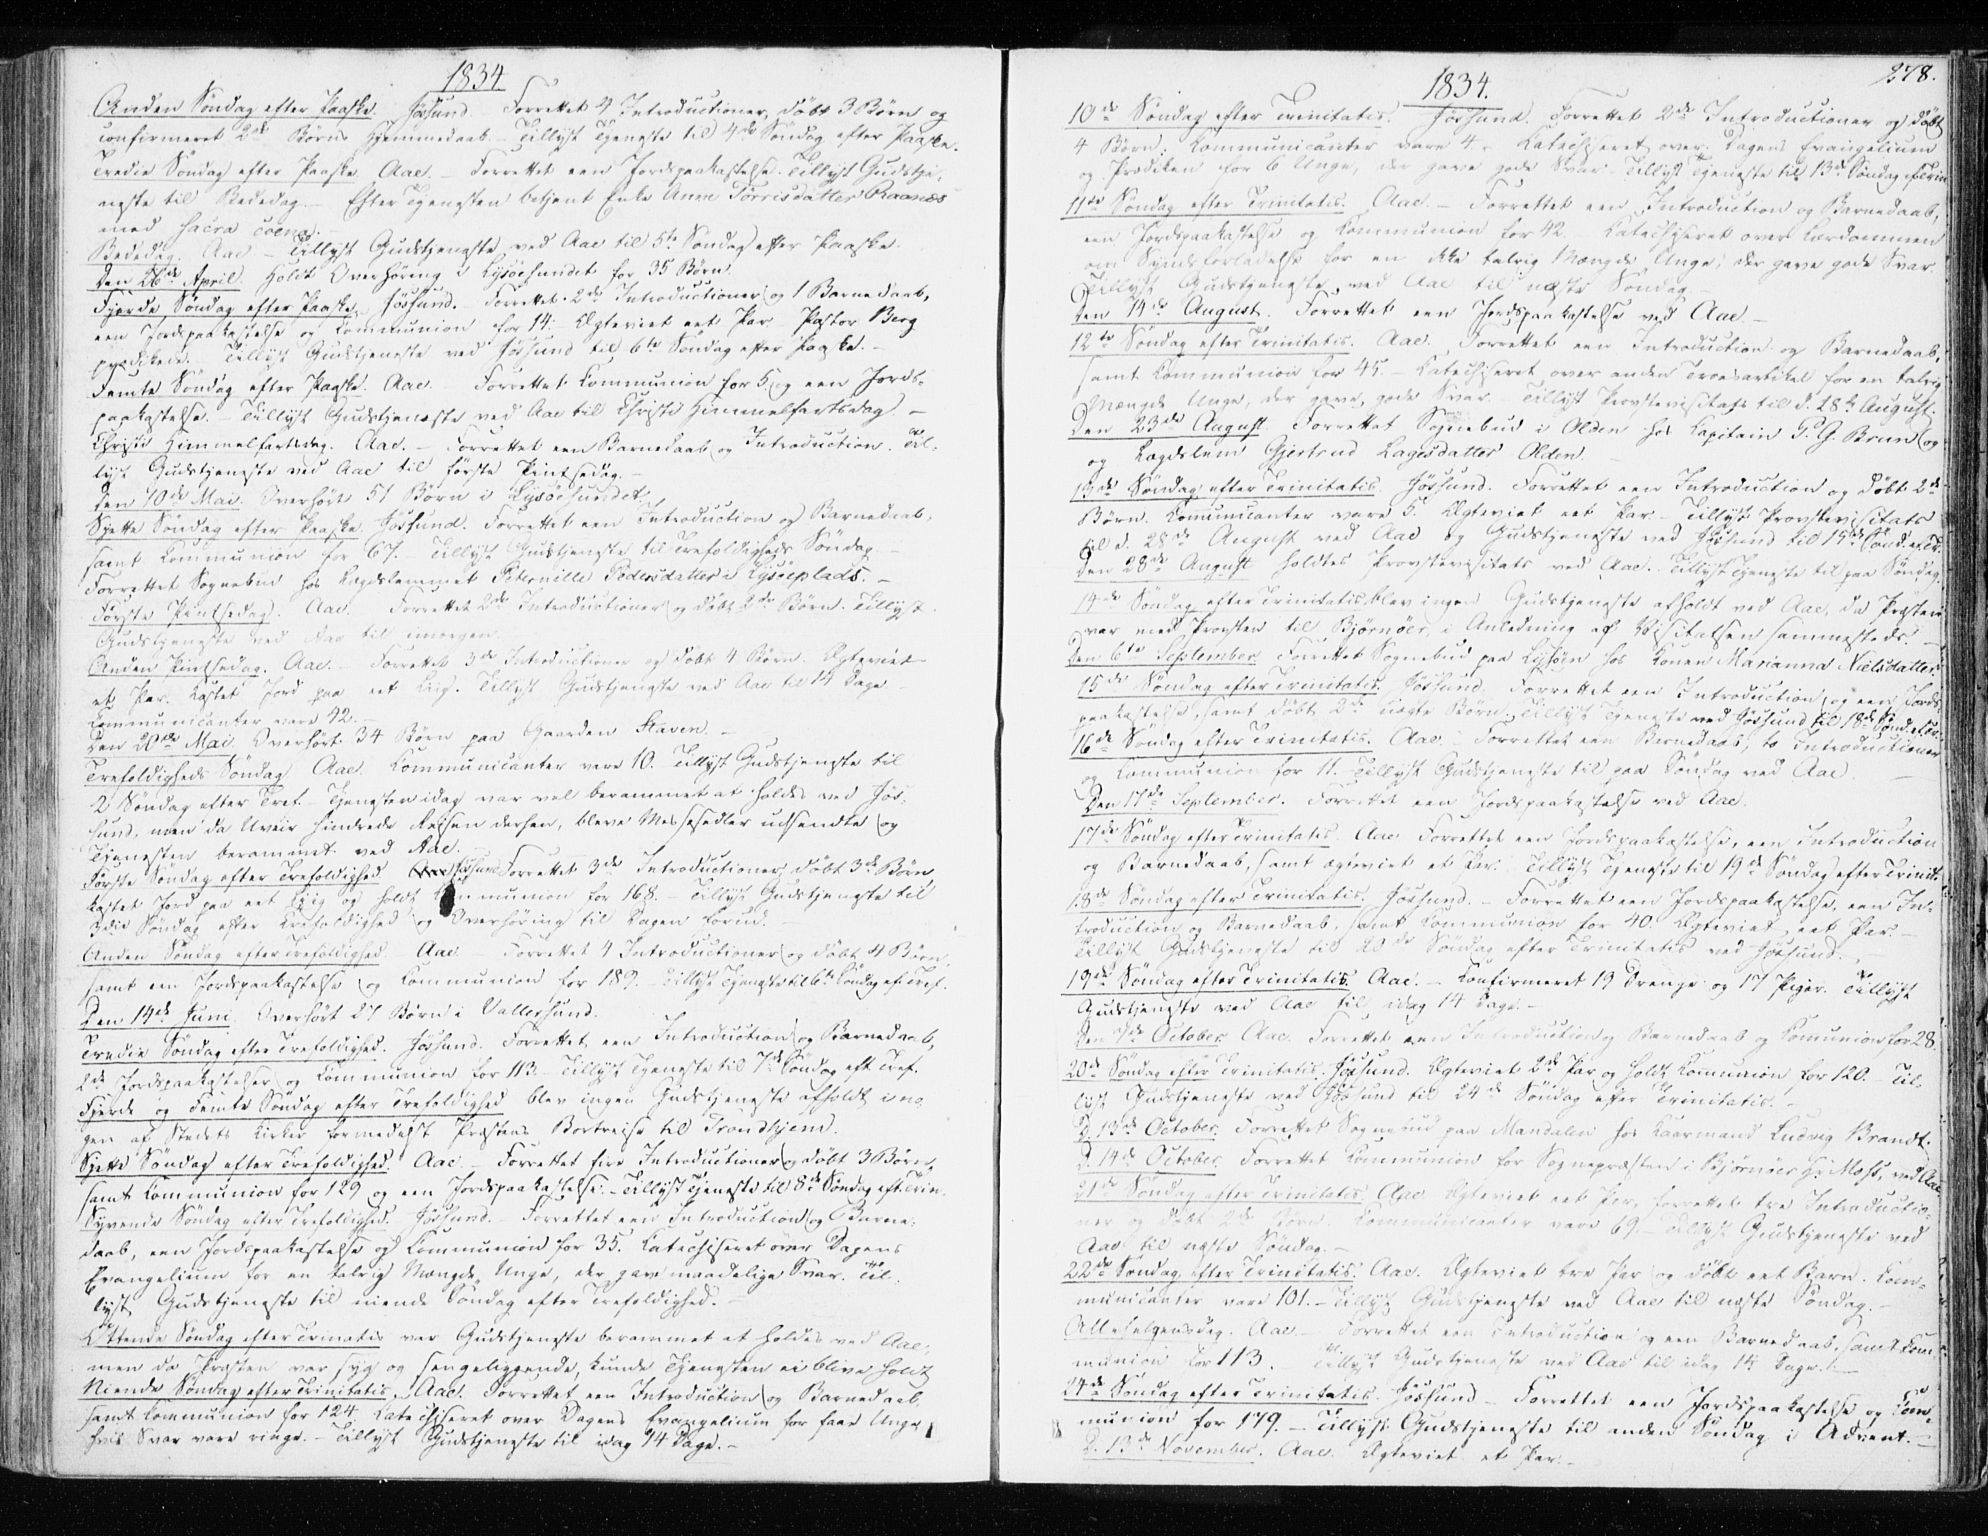 1834.
Anden Søndag efter Paaske. Jøssund. Forrettet 4 Introductioner, døbt 3 Børn og
confirmeret 2de Børns Hjemmedaab. Tillyst Tjeneste til 4de Søndag efter Paaske.
Tredie Søndag efter Paaske. Aae. – Forrettet een Jordspaakastelse. Tillyst Gudstje-
neste til Bededag. – Efter Tjenesten betjent Enke Anne Torrisdatter Raanes
med sacra coena. –
Bededag. Aae – Tillyst Gudstjeneste ved Aae til 5te Søndag efter Paaske.
Den 26de April. Holdt Overhøring i Lysøesundet for 35 Børn.
Fjerde Søndag efter Paaske. Jøssund. – Forrettet 2de Introductioner og 1 Barnedaab,
een Jordspaakastelse og Communion for 14. – Ægteviet eet Par – Pastor Berg
prædikede. – Tillyst Gudstjeneste ved Jøssund til 6te Søndag efter Paaske. –
Femte Søndag efter Paaske. Aae. – Forrettet Communion for 5 og een Jords-
paakastelse. – Tillyst Gudstjeneste ved Aae til Christi Himmelfartsdag. –
Christi Himmelfartsdag. Aae. – Forrettet een Barnedaab og Introduction. Til-
lyst Gudstjeneste ved Aae til første Pintsedag. –
Den 10de Mai. Overhørt 51 Børn i Lysøesundet.
Sjette Søndag efter Paaske. Jøssund. Forrettet een Introduction og Barnedaab,
samt Communion for 67. – Tillyst Gudstjeneste til Trefoldigheds Søndag. –
Forrettet Sognebud hos Lægdslemmet Peternille Pedersdatter i Lysøeplads. –
Første Pintsedag. Aae. Forrettet 2de Introductioner og døbt 2de Børn. Tillyst
Gudstjeneste ved Aae til imorgen.
Anden Pintsedag. Aae. – Forrettet 3de Introductioner og døbt 4 Børn. Ægteviet
et Par. Kastet Jord paa eet Liig. Tillyst Gudstjeneste ved Aae til 14 Dage
Communicanter vare 42. –
Den 20de Mai. Overhørt 34 Børn paa Gaarden Staven. –
Trefoldigheds Søndag. Aae. Communicanter vare 10. – Tillyst Gudstjeneste til
2 Søndag efter Tref. – Tjenesten idag var vel berammet at holdes ved Jøs-
sund, men da Uveir hindrede Reisen derhen, bleve Messesedler udsendte og
Tjenesten berammet ved Aae.
Første Søndag efter Trefoldighed. Jøssund Forrettet 3de Introductioner, døbt 3de Børn
kastet Jord paa eet Liig og holdt Communion for 168. – Tillyst Gudstjeneste til
3die Søndag efter Trefoldighed og Overhøring til Dagen forud.
Anden Søndag efter Trefoldighed – Aae. – Forrettet 4 Introductioner og døbt 4 Børn,
samt een Jordspaakastelse og Communion for 189. – Tillyst Tjeneste til 6te Søndag ef. Tref.
Den 14de Juni. Overhørt 27 Børn i Vallersund.
Tredie Søndag efter Trefoldighed. Jøssund. Forrettet een Introduction og Barnedaab,
2de Jordspaakastelser og Communion for 113. – Tillyst Tjeneste til 7de Søndag eft. Tref.
Fjerde og Femte Søndag efter Trefoldighed blev ingen Gudstjeneste afholdt i no-
gen af Stedets Kirker formedelst Præstens Bortreise til Trondhjem.
Sjette Søndag efter Trefoldighed. Aae. – Forrettet fire Introductioner og døbt 3 Børn,
samt Communion for 129 og een Jordspaakastelse. – Tillyst Tjeneste til 8de Søndag eft. Trin.
Syvende Søndag efter Trefoldighed. Jøssund. – Forrettet een Introduction og Barne-
daab, een Jordspaakastelse og Communion for 35. Catechiseret over Dagens
Evangelium for en talrig Mængde Unge, der gave maadelige Svar. Til-
lyst Gudstjeneste til niende Søndag efter Trefoldighed. –
Ottende Søndag efter Trinatis var Gudstjeneste berammet at holdes ved Aae,
men da Præsten var syg og sengeliggende, kunde Tjenesten ei blive holdt
Niende Søndag efter Trinitatis. Aae. Forrettet een Introduction og Barnedaab,
samt Communion for 124. Catechiseret over Dagens Evangelium for faae Unge
hvis Svar vare ringe. – Tillyst Gudstjeneste til idag 14 Dage. –
1834.
278.
10de Søndag efter Trinitatis. Jøssund. Forrettet 2de Introductioner og døbt
4 Børn. Communicanter vare 4. Catechiseret over Dagens Evangelium
og Prædiken for 6 Unge, der gave gode Svar. Tillyst Tjeneste til 13de Søndag ef. Trin.
11te Søndag efter Trinitatis. Aae. – Forrettet een Introduction og Barnedaab,
een Jordspaakastelse og Communion for 42. Catechiseret over Lærdommen
om Synds Forladelse for en ikke talrig Mængde Unge, der gave gode Svar.
Tillyst Gudstjeneste ved Aae til næste Søndag. –
Den 14de August. Forrettet een Jordspaakastelse ved Aae. –
12te Søndag efter Trinitatis. Aae. Forrettet een Introduction og Barnedaab,
samt Communion for 45. – Catechiseret over anden Troesartikel for en talrig
Mængde Unge, der gave gode Svar. – Tillyst Provstevisitats til d. 28de August.
Den 23de August. Forrettet Sognebud i Olden hos Capitain P. G. Brun og
og Lægdslem Gjertrud Lagesdatter Olden. –
13de Søndag efter Trinitatis. Jøssund. Forrettet een Introduction og døbt 2de
Børn. Communicanter vare 5. Ægteviet eet Par. – Tillyst Provstevisitats
til d. 28de August ved Aae og Gudstjeneste ved Jøssund til 15de Sønd. ef. Tr.
Den 28de August holdtes Provstevisitats ved Aae. Tillyst Tjeneste til paa Søndag.
14de Søndag efter Trinitatis blev ingen Gudstjeneste afholdt ved Aae, da Præsten
var med Provsten til Bjørnøer, i Anledning af Visitatsen sammesteds. –
Den 6te September. Forrettet Sognebud paa Lysøen hos Konen Marianna Nielsdatter.
15de Søndag efter Trinitatis. Jøssund. Forrettet een Introduction og een Jords-
paakastelse, samt døbt 2de uægte Børn. Tillyst Tjeneste ved Jøssund til 18de Sønd. ef. Tr.
16de Søndag efter Trinitatis. Aae. – Forrettet een Barnedaab, to Introductioner
og Communion for 11. – Tillyst Gudstjeneste til paa Søndag ved Aae. –
Den 17de September. Forrettet een Jordspaakastelse ved Aae.
17de Søndag efter Trinitatis. Aae. Forrettet een Jordspaakastelse, een Introduction
og Barnedaab, samt ægteviet et Par. – Tillyst Tjeneste til 19de Søndag efter Trinit.
18de Søndag efter Trinitatis. Jøssund. – Forrettet een Jordspaakastelse, een In-
troduction og Barnedaab, samt Communion for 40. Ægteviet eet Par. –
Tillyst Gudstjeneste til 20de Søndag efter Trinitatis ved Jøssund. –
19de Søndag efter Trinitatis. Aae. – Confirmeret 19 Drenge og 17 Piger. Tillyst
Gudstjeneste ved Aae til idag 14 Dage. –
Den 7de October. Aae. Forrettet een Introduction og Barnedaab og Communion for 28.
20de Søndag efter Trinitatis. Jøssund. Ægteviet 2de Par og holdt Communion for 120. – Til-
lyst Gudstjeneste ved Jøssund til 24de Søndag efter Trinitatis. –
D. 13de October. Forrettet Sognebud paa Mandalen hos Kaarmand Ludvig Brandt.
D. 14de October. Forrettet Communion for Sognepræsten i Bjørnøer Hr. Most, ved Aae.
21de Søndag efter Trinitatis. Aae. Ægteviet eet Par, forrettet tre Introductio-
ner og døbt 2de Børn. Communicanter vare 69. – Tillyst Gudstjeneste ved
Aae til næste Søndag. –
22de Søndag efter Trinitatis. Aae. Ægteviet tre Par og døbt eet Barn. Com-
municanter vare 101. – Tillyst Gudstjeneste ved Aae til næste Søndag. –
Allehelgensdag. Aae. – Forrettet een Introduction og een Barnedaab, samt Com-
munion for 113. Tillyst Gudstjeneste ved Aae til idag 14 Dage. –
24de Søndag efter Trinitatis. Jøssund. – Forrettet een Jordspaakastelse og Com-
munion for 179. – Tillyst Gudstjeneste til anden Søndag i Advent. –
D. 13de November. Aae. Ægteviet et Par. –